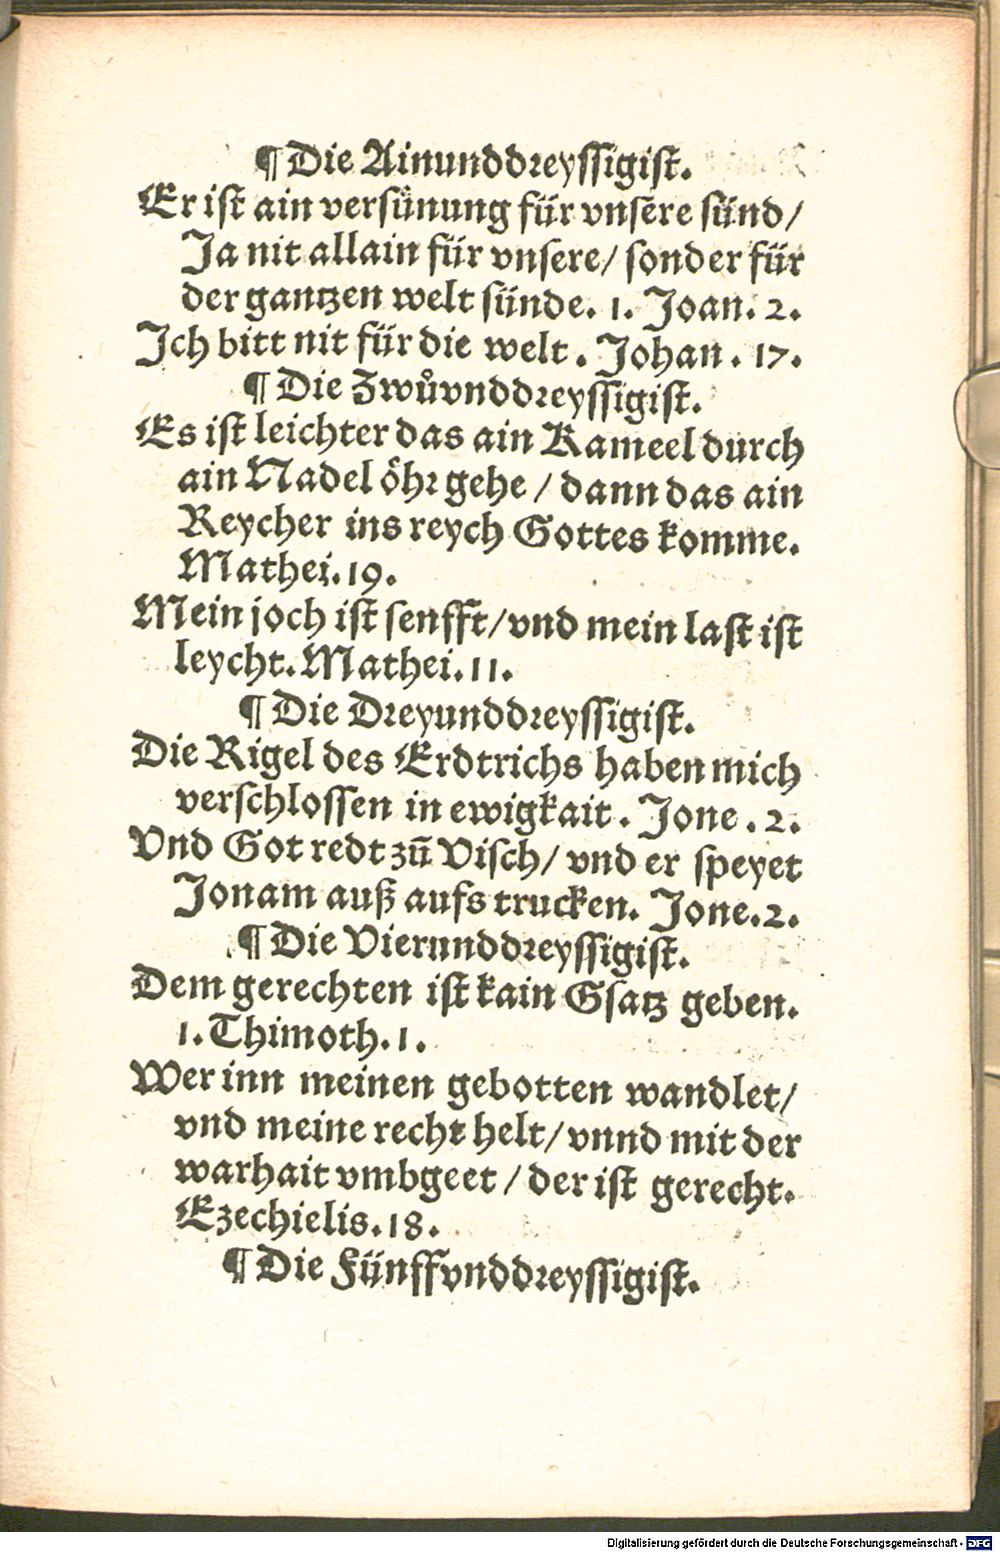 ¶ Die Ainunddreyssigist.
Er ist ain versünung für vnsere sünd/
Ja nit allain für vnsere/ sonder für
der gantzen welt sünde. 1. Joan. 2.
Ich bitt nit für die welt. Johan. 17.
¶ Die Zwůvnddreyssigist.
Es ist leichter das ain Kameel durch
ain Nadel öhr gehe / dann das ain
Reycher ins reych Gottes komme.
Mathei. 19.
Mein joch ist senfft/vnd mein last ist
leycht. Mathei. 11.
¶ Die Dreyunddreyssigist.
Die Rigel des Erdtrichs haben mich
verschlossen in ewigkait. Jone. 2.
Vnd Got redt zū Visch/ vnd er speyet
Jonam auß aufs trucken. Jone. 2.
¶ Die Vierunddreyssigist.
Dem gerechten ist kain Gsatz geben.
1. Thimoth. 1.
Wer inn meinen gebotten wandlet/
vnd meine recht helt/ vnnd mit der
warhait vmbgeet / der ist gerecht.
Ezechielis. 18.
¶ Die Fünffvnddreyssigist.
Digitalisierung gefördert durch die Deutsche Forschungsgemeinschaft - DFG